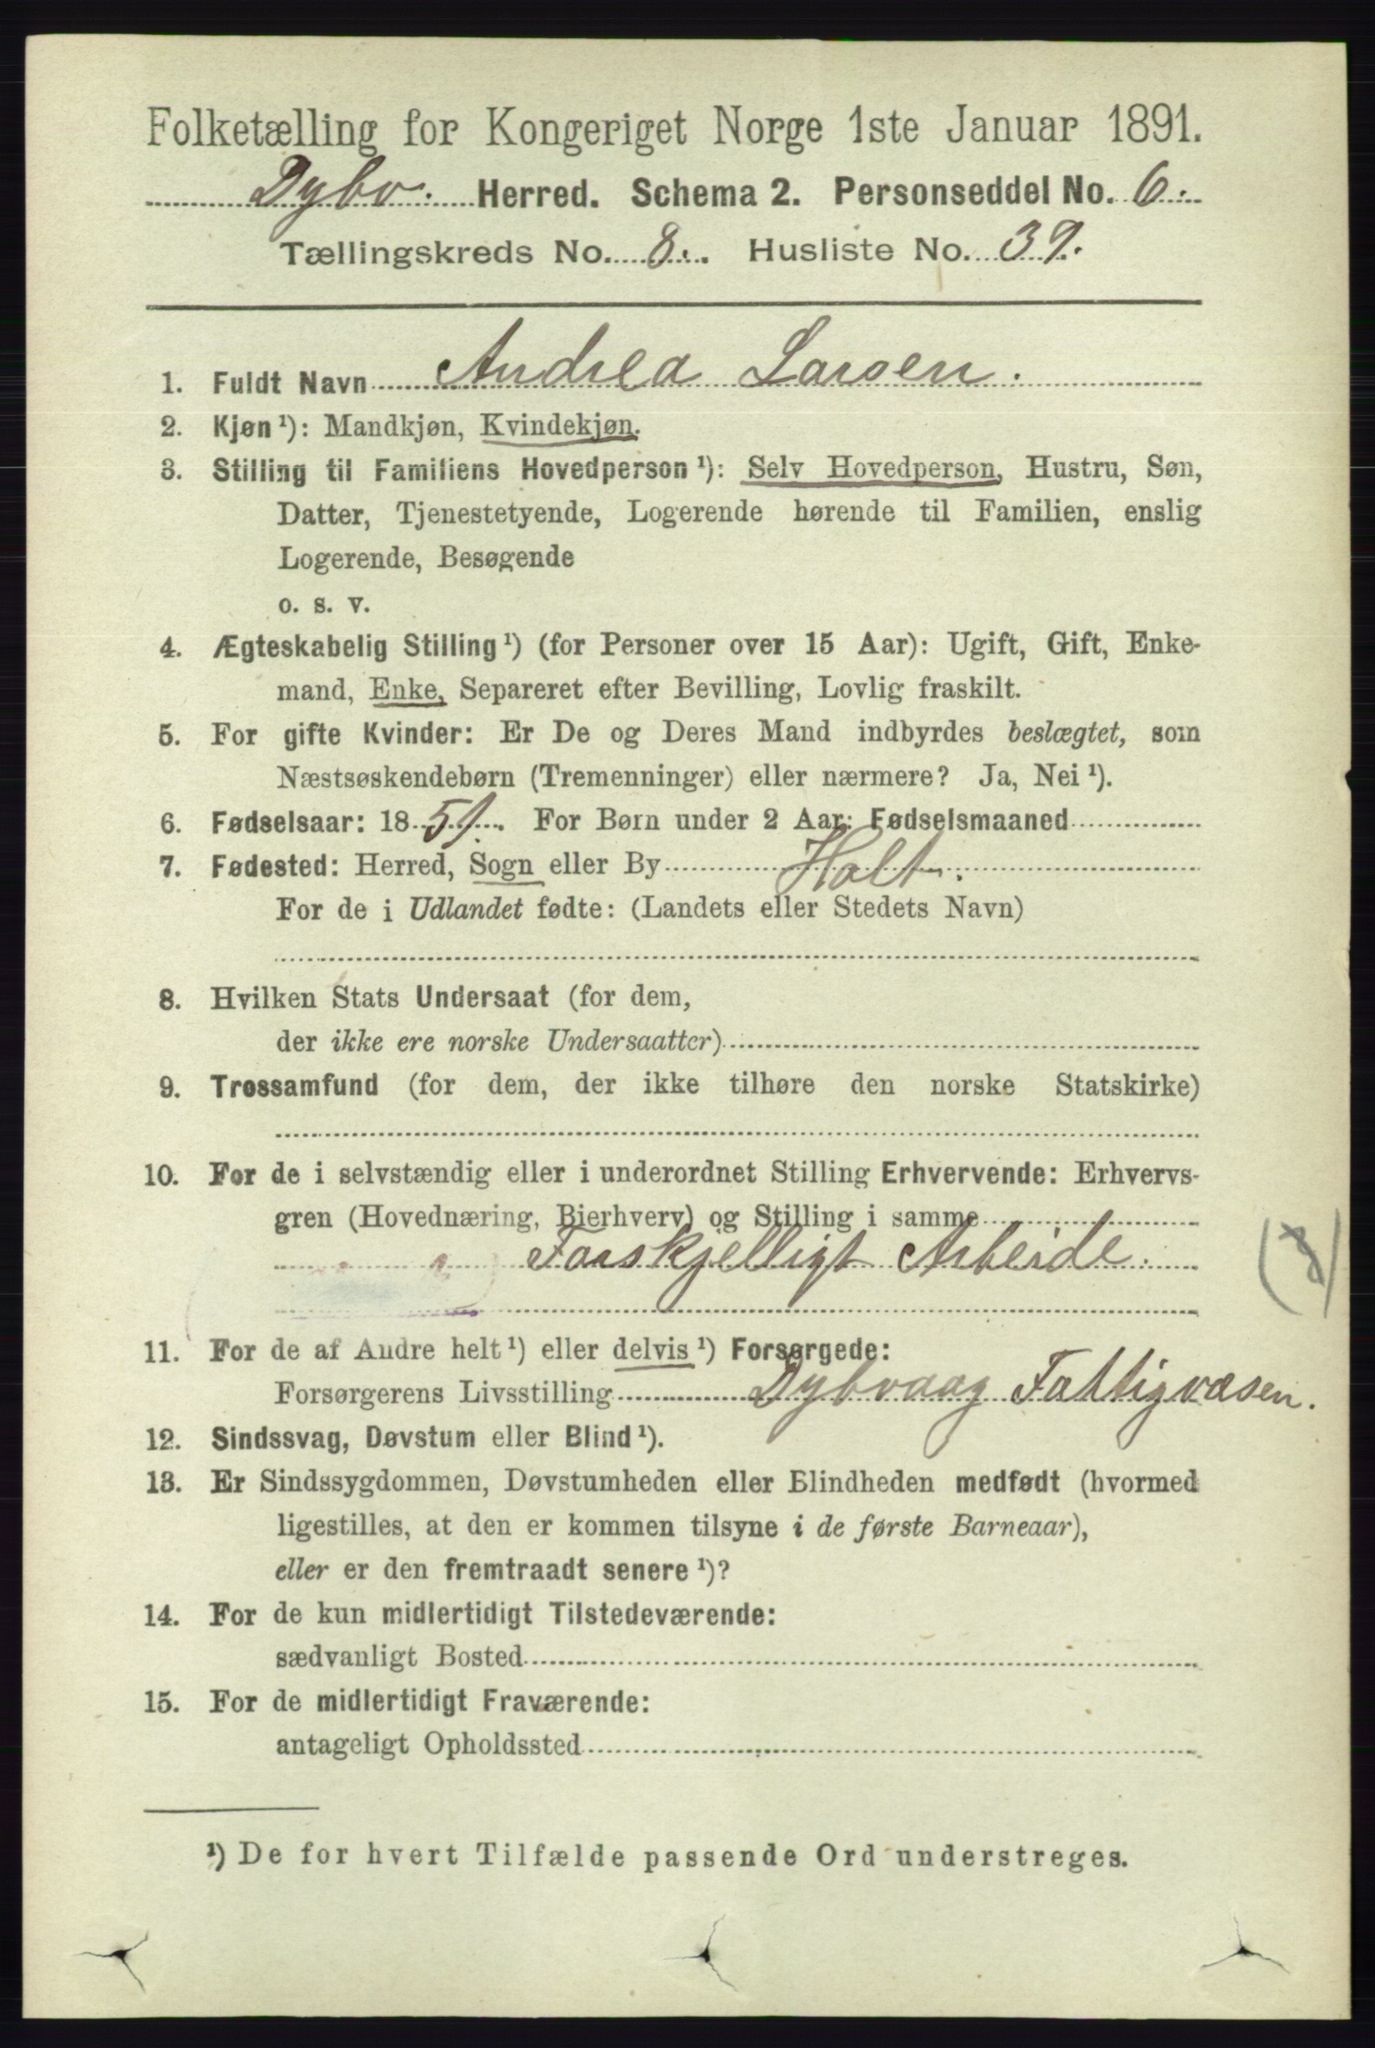 Folketælling for Kongeriget Norge 1ste Januar 1891.
Dybv. Herred. Schema 2. Personseddel No. 6.
Tællingskreds No. 8. Husliste No. 39.
1. Fuldt Navn Andrea Larsen.
2. Kjøn ¹): Mandkjøn, Kvindekjøn.
3. Stilling til Familiens Hovedperson ¹): Selv Hovedperson, Hustru, Søn,
Datter, Tjenestetyende, Logerende hørende til Familien, enslig
Logerende, Besøgende
o. s. v.
4. Ægteskabelig Stilling ¹) (for Personer over 15 Aar): Ugift, Gift, Enke-
mand, Enke, Separeret efter Bevilling, Lovlig fraskilt.
5. For gifte Kvinder: Er De og Deres Mand indbyrdes beslægtet, som
Næstsøskendebørn (Tremenninger) eller nærmere? Ja, Nei ¹).
6. Fødselsaar: 1851. For Børn under 2 Aar: Fødselsmaaned
7. Fødested: Herred, Sogn eller By Holt.
For de i Udlandet fødte: (Landets eller Stedets Navn)
8. Hvilken Stats Undersaat (for dem,
der ikke ere norske Undersaatter)
9. Trossamfund (for dem, der ikke tilhøre den norske Statskirke)
10. For de i selvstændig eller i underordnet Stilling Erhvervende: Erhvervs-
gren (Hovednæring, Bierhverv) og Stilling i samme
Forskjelligt Arbeide.
11. For de af Andre helt ¹) eller delvis ¹) Forsørgede:
Forsørgerens Livsstilling Dybvaag Fattigvæsen.
12. Sindssvag, Døvstum eller Blind ¹).
13. Er Sindssygdommen, Døvstumheden eller Blindheden medfødt (hvormed
ligestilles, at den er kommen tilsyne i de første Barneaar),
eller er den fremtraadt senere ¹)?
14. For de kun midlertidigt Tilstedeværende:
sædvanligt Bosted
15. For de midlertidigt Fraværende:
antageligt Opholdssted
¹) De for hvert Tilfælde passende Ord understreges.